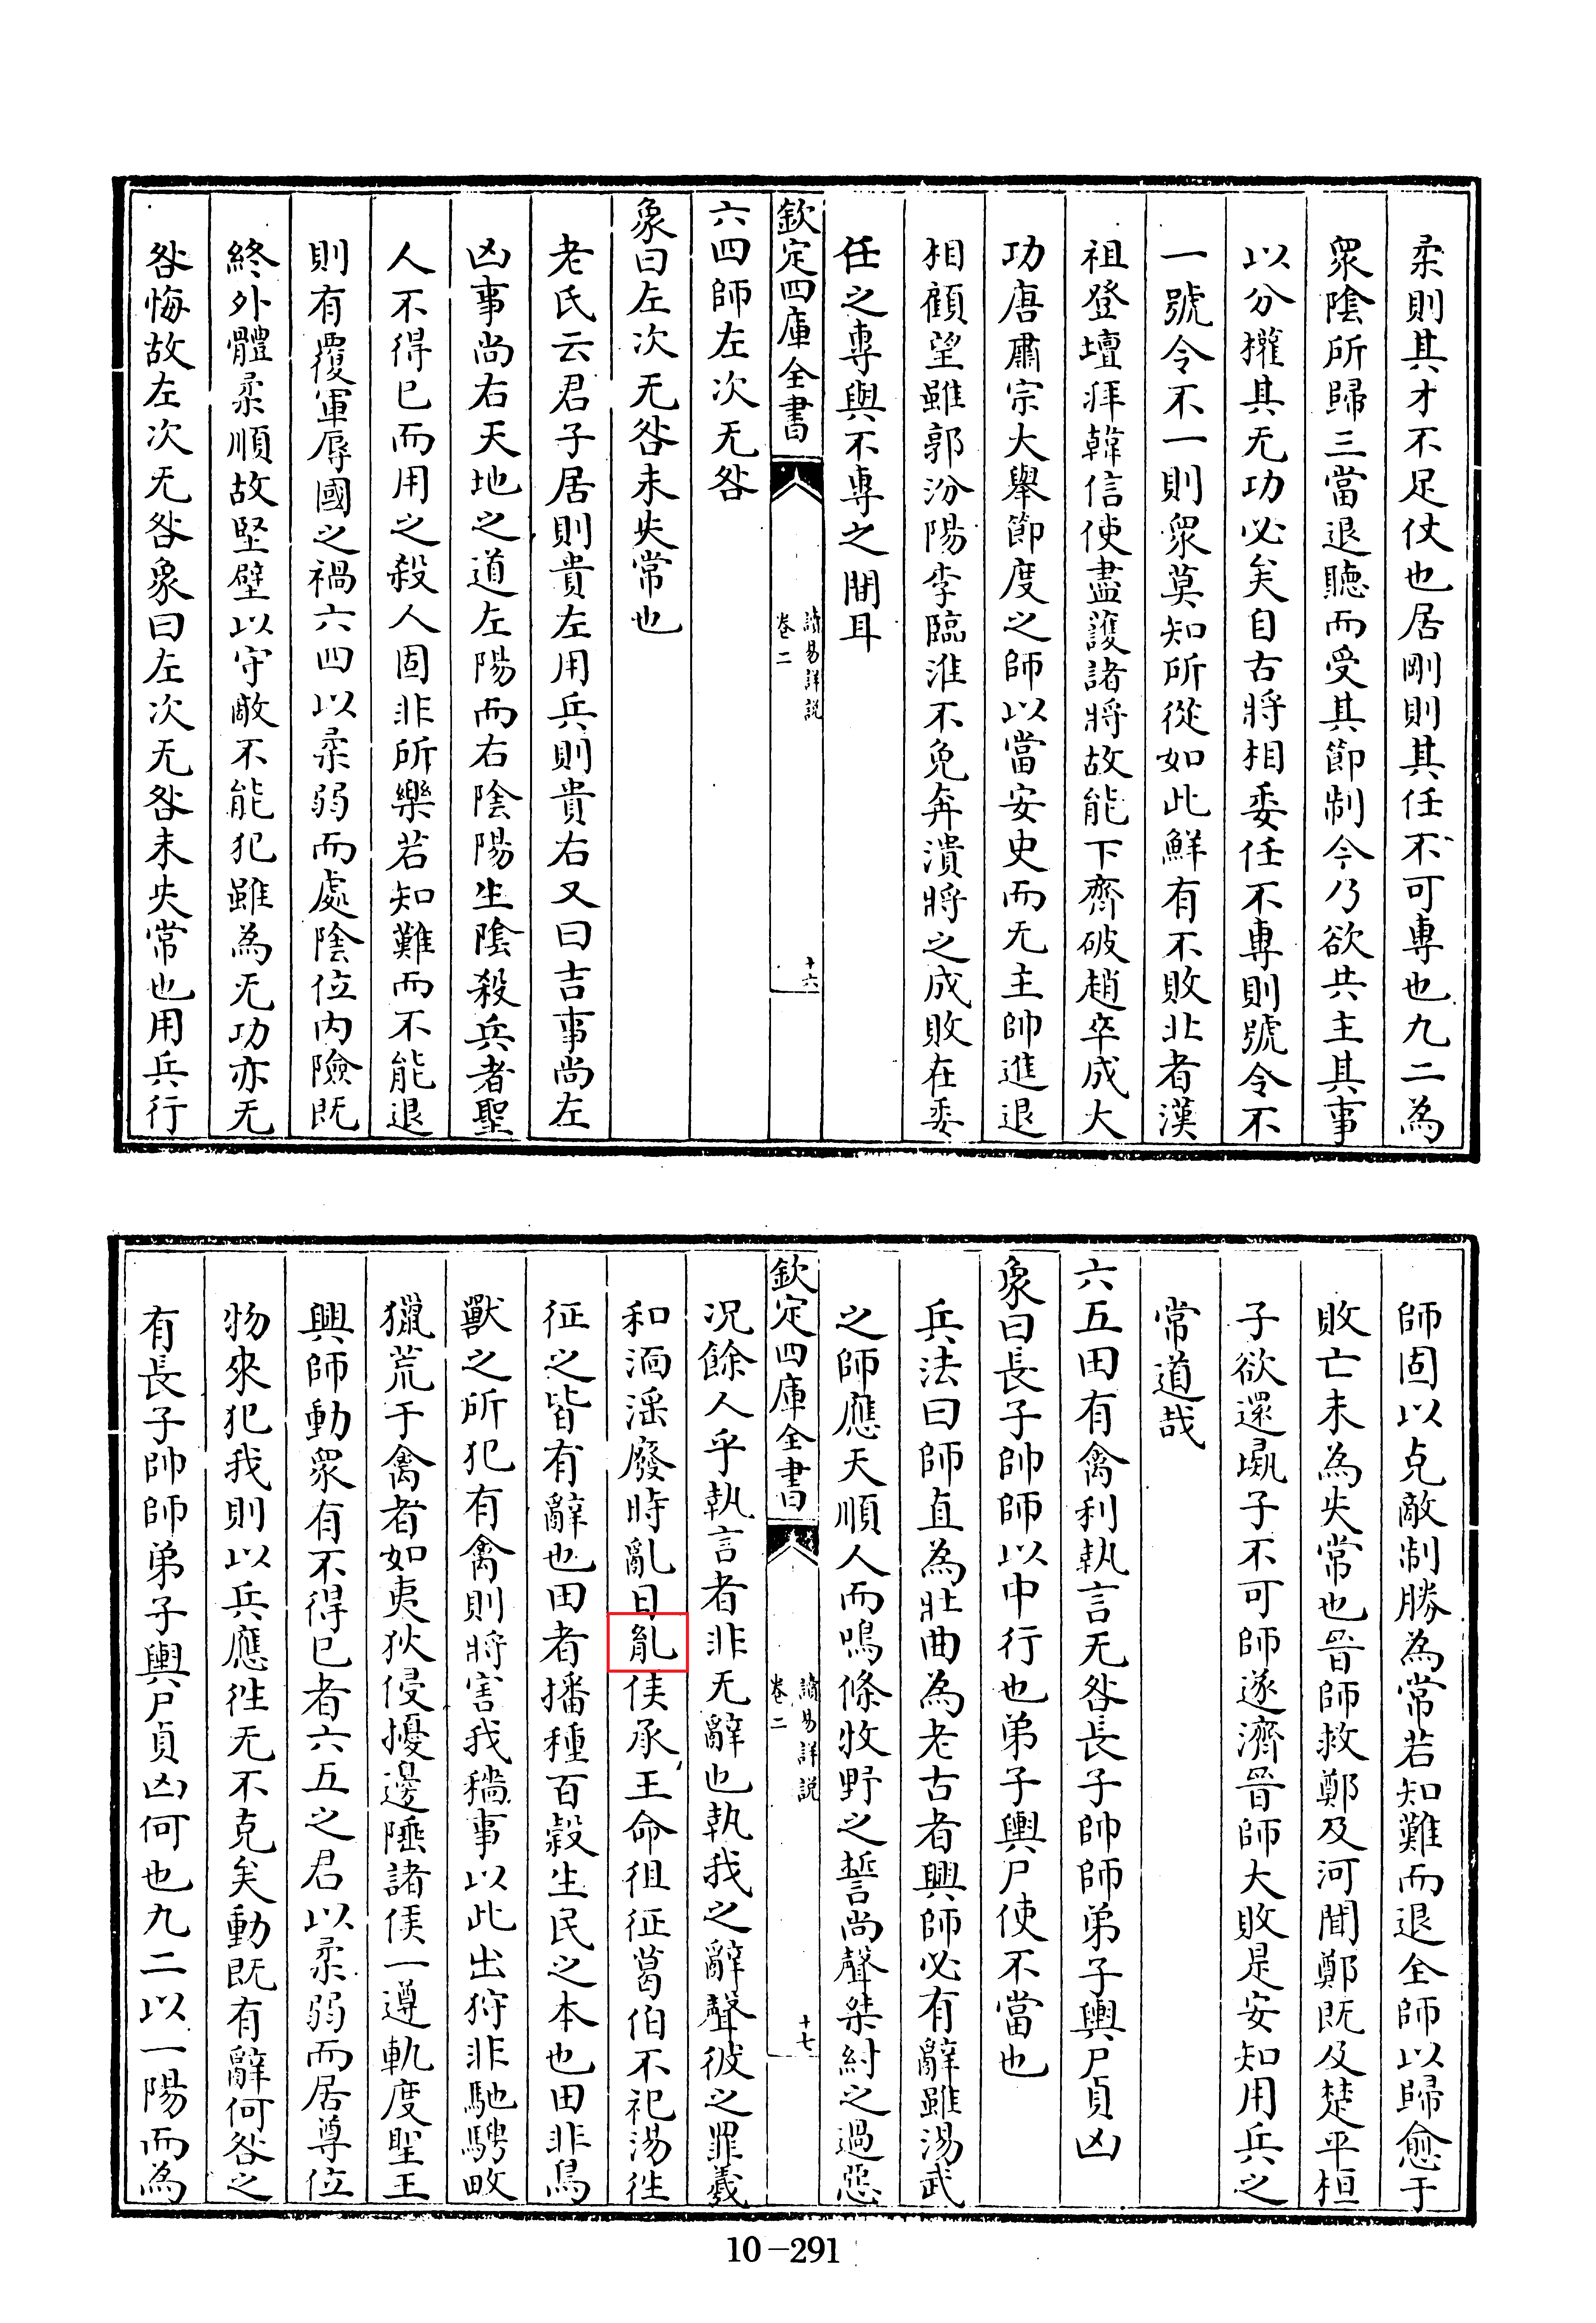 柔則其才不足仗也居剛則其任不可專也九二為
衆陰所歸三當退聽而受其節制今乃欲共主其事
以分權其无功必矣自古將相委任不專則號令不
一號令不一則衆莫知所從如此鮮有不敗北者漢
祖登壇拜韓信使盡護諸將故能下齊破趙卒成大
功唐肅宗大舉節度之師以當安史而无主帥進退
相顧望雖郭汾陽李臨淮不免奔潰將之成敗在委
任之專與不專之間耳
欽定四庫全書
讀易詳說
卷二
十六
六四師左次无咎
象曰左次无咎未失常也
老氏云君子居則貴左用兵則貴右又曰吉事尚左
凶事尚右天地之道左陽而右陰陽生陰殺兵者聖
人不得已而用之殺人固非所樂若知難而不能退
則有覆軍辱國之禍六四以柔弱而處陰位内險既
終外體柔順故堅壁以守敵不能犯雖為无功亦无
咎悔故左次无咎象曰左次无咎未失常也用兵行
師固以克敵制勝為常若知難而退全師以歸愈于
敗亡未為失常也晉師救鄭及河聞鄭既及楚平桓
子欲還彘子不可師遂濟晉師大敗是安知用兵之
常道哉
六五田有禽利執言无咎長子帥師弟子輿尸貞凶
象曰長子帥師以中行也弟子輿尸使不當也
兵法曰師直為壯曲為老古者興師必有辭雖湯武
之師應天順人而鳴條牧野之誓尚聲桀紂之過惡
欽定四庫全書
讀易詳說
卷二
十七
况餘人乎執言者非无辭也執我之辭聲彼之罪羲
和湎滛廢時亂日胤侯承王命徂征葛伯不祀湯徃
征之皆有辭也田者播種百穀生民之本也田非鳥
獸之所犯有禽則將害我穡事以此出狩非馳騁畋
獵荒于禽者如夷狄侵擾邊陲諸侯一遵軌度聖王
興師動衆有不得已者六五之君以柔弱而居尊位
物來犯我則以兵應徃无不克矣動既有辭何咎之
有長子帥師弟子輿尸貞凶何也九二以一陽而為
10-291